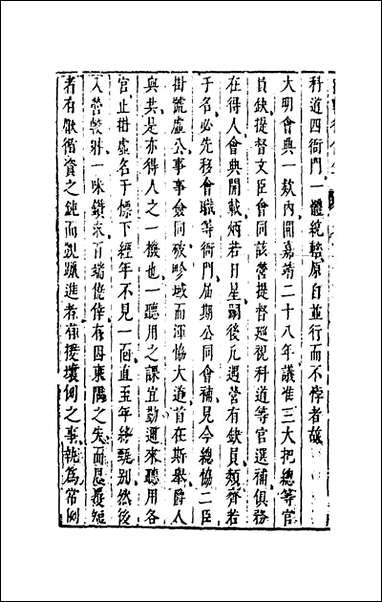 科道四衙門一體統轄原自並行而不悖者故
大明會典一款內開嘉靖二十八年議准三大把總等官
員缺提督文臣會同該營提督巡視科道等官選補俱務
在得人會典開載炳若日星嗣後凡遇營有缺員類齊若
于名必先移會職等衙門屆期公同會補見今總協二臣
掛號虛公事事僉同破畛域而渾協大道首在斯舉爵人
與共是亦得人之一機也一聽用之課宜勤邇來聽用各
官止掛虛名于標下經年不見一面直至年終甄別然後
入營較射一味鑽求百端僥倖有因東隅之失而思爰短
者有厭循資之鈍而覬躐進者有援壞例之事執為常例